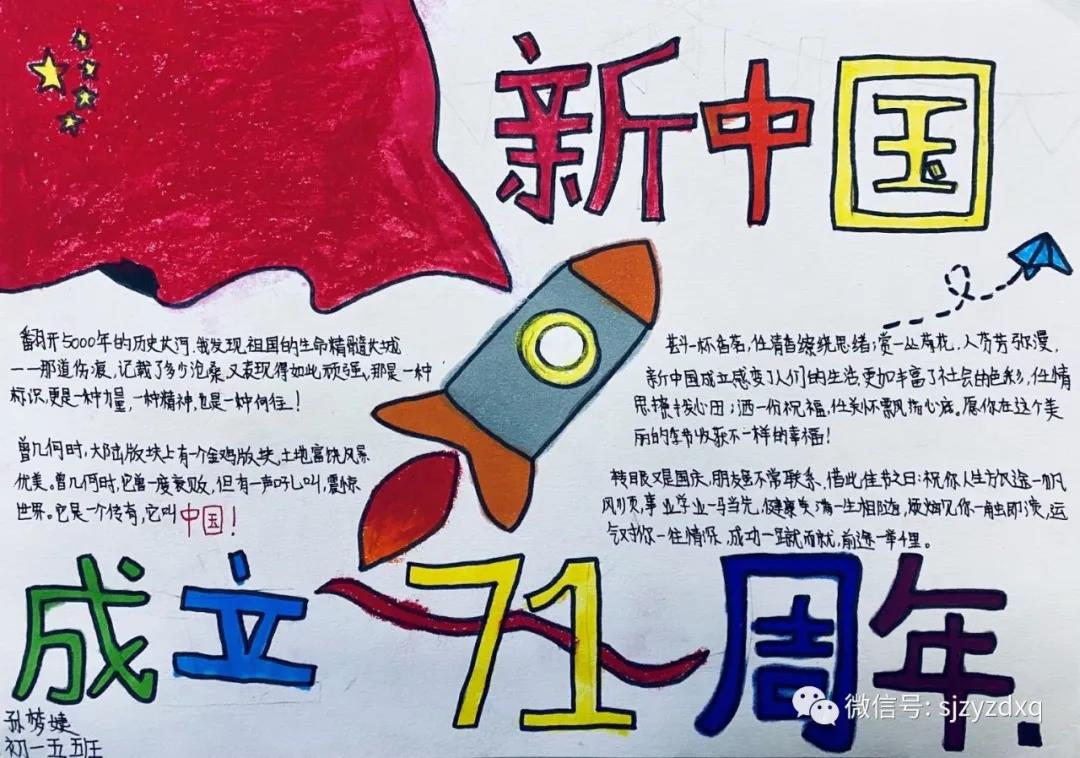 新中国
翻开5000年的历史大河,我发现,祖国的生命精髓长城
——那道伤痕,记载了多少沧桑,又表现得如此顽强,那是一种
标识,更是一种力量,一种精神,也是一种向往!
曾几何时,大陆版块上有一个金鸡版块,土地富饶风景
优美。曾几何时,它曾一度衰败,但有一声呐叫,震惊
世界。它是一个传奇,它叫中国!
斟一杯香茗,任清香缭绕思绪;赏一丛荷花,人芬芳弥漫,
新中国成立感变了人们的生活,更加丰富了社会的色彩,任情
思撩拨心田;洒一份祝福,任关怀飘荡心底。愿你在这个美
丽的季节收获不一样的幸福!
转眼又是国庆,朋友虽不常联系,借此佳节之日:祝你人生旅途一帆
风顺,事业学业一马当先,健康美满一生相随,烦恼见你一触即溃,运
气对你一往情深,成功一蹴而就,前途一举千里。
成立71周年
孙梦婕
初一五五班
微信号: sjzyzdxq